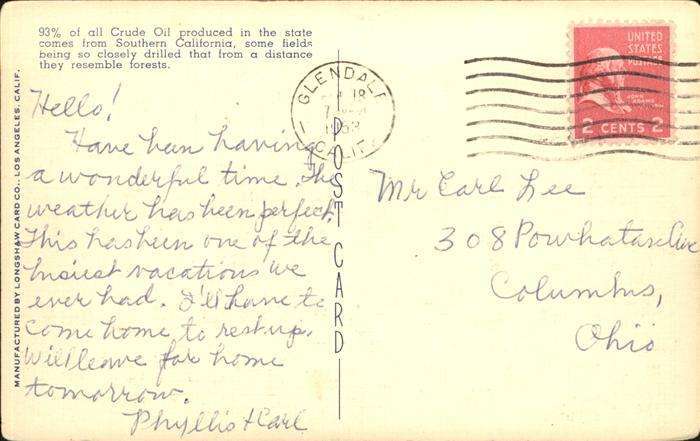 93% of all Crude Oil produced in the state
comes from Southern California, some fields
being so closely drilled that from a distance
they resemble forests.
MANUFACTURED BY LONGSHAW CARD CO., LOS ANGELES, CALIF.
Hello!
Have been having
a wonderful time. The
weather has been perfect.
This has been one of the
busiest vacations we
ever had. I'll have to
come home to rest up.
Will leave for home
tomorrow.
Phyllis + Carl
POST CARD
GLENDALE
18
7
CALIF
UNITED
STATES
POSTAGE
JOHN
ADAMS
2 CENTS 2
Mr Carl Lee
308 Powhatan Ave
Columbus,
Ohio